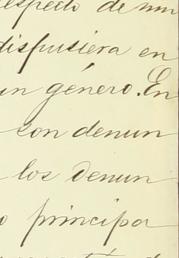 respecto de mu
dispusiera en
un género. En
son denun
los denun
o principa